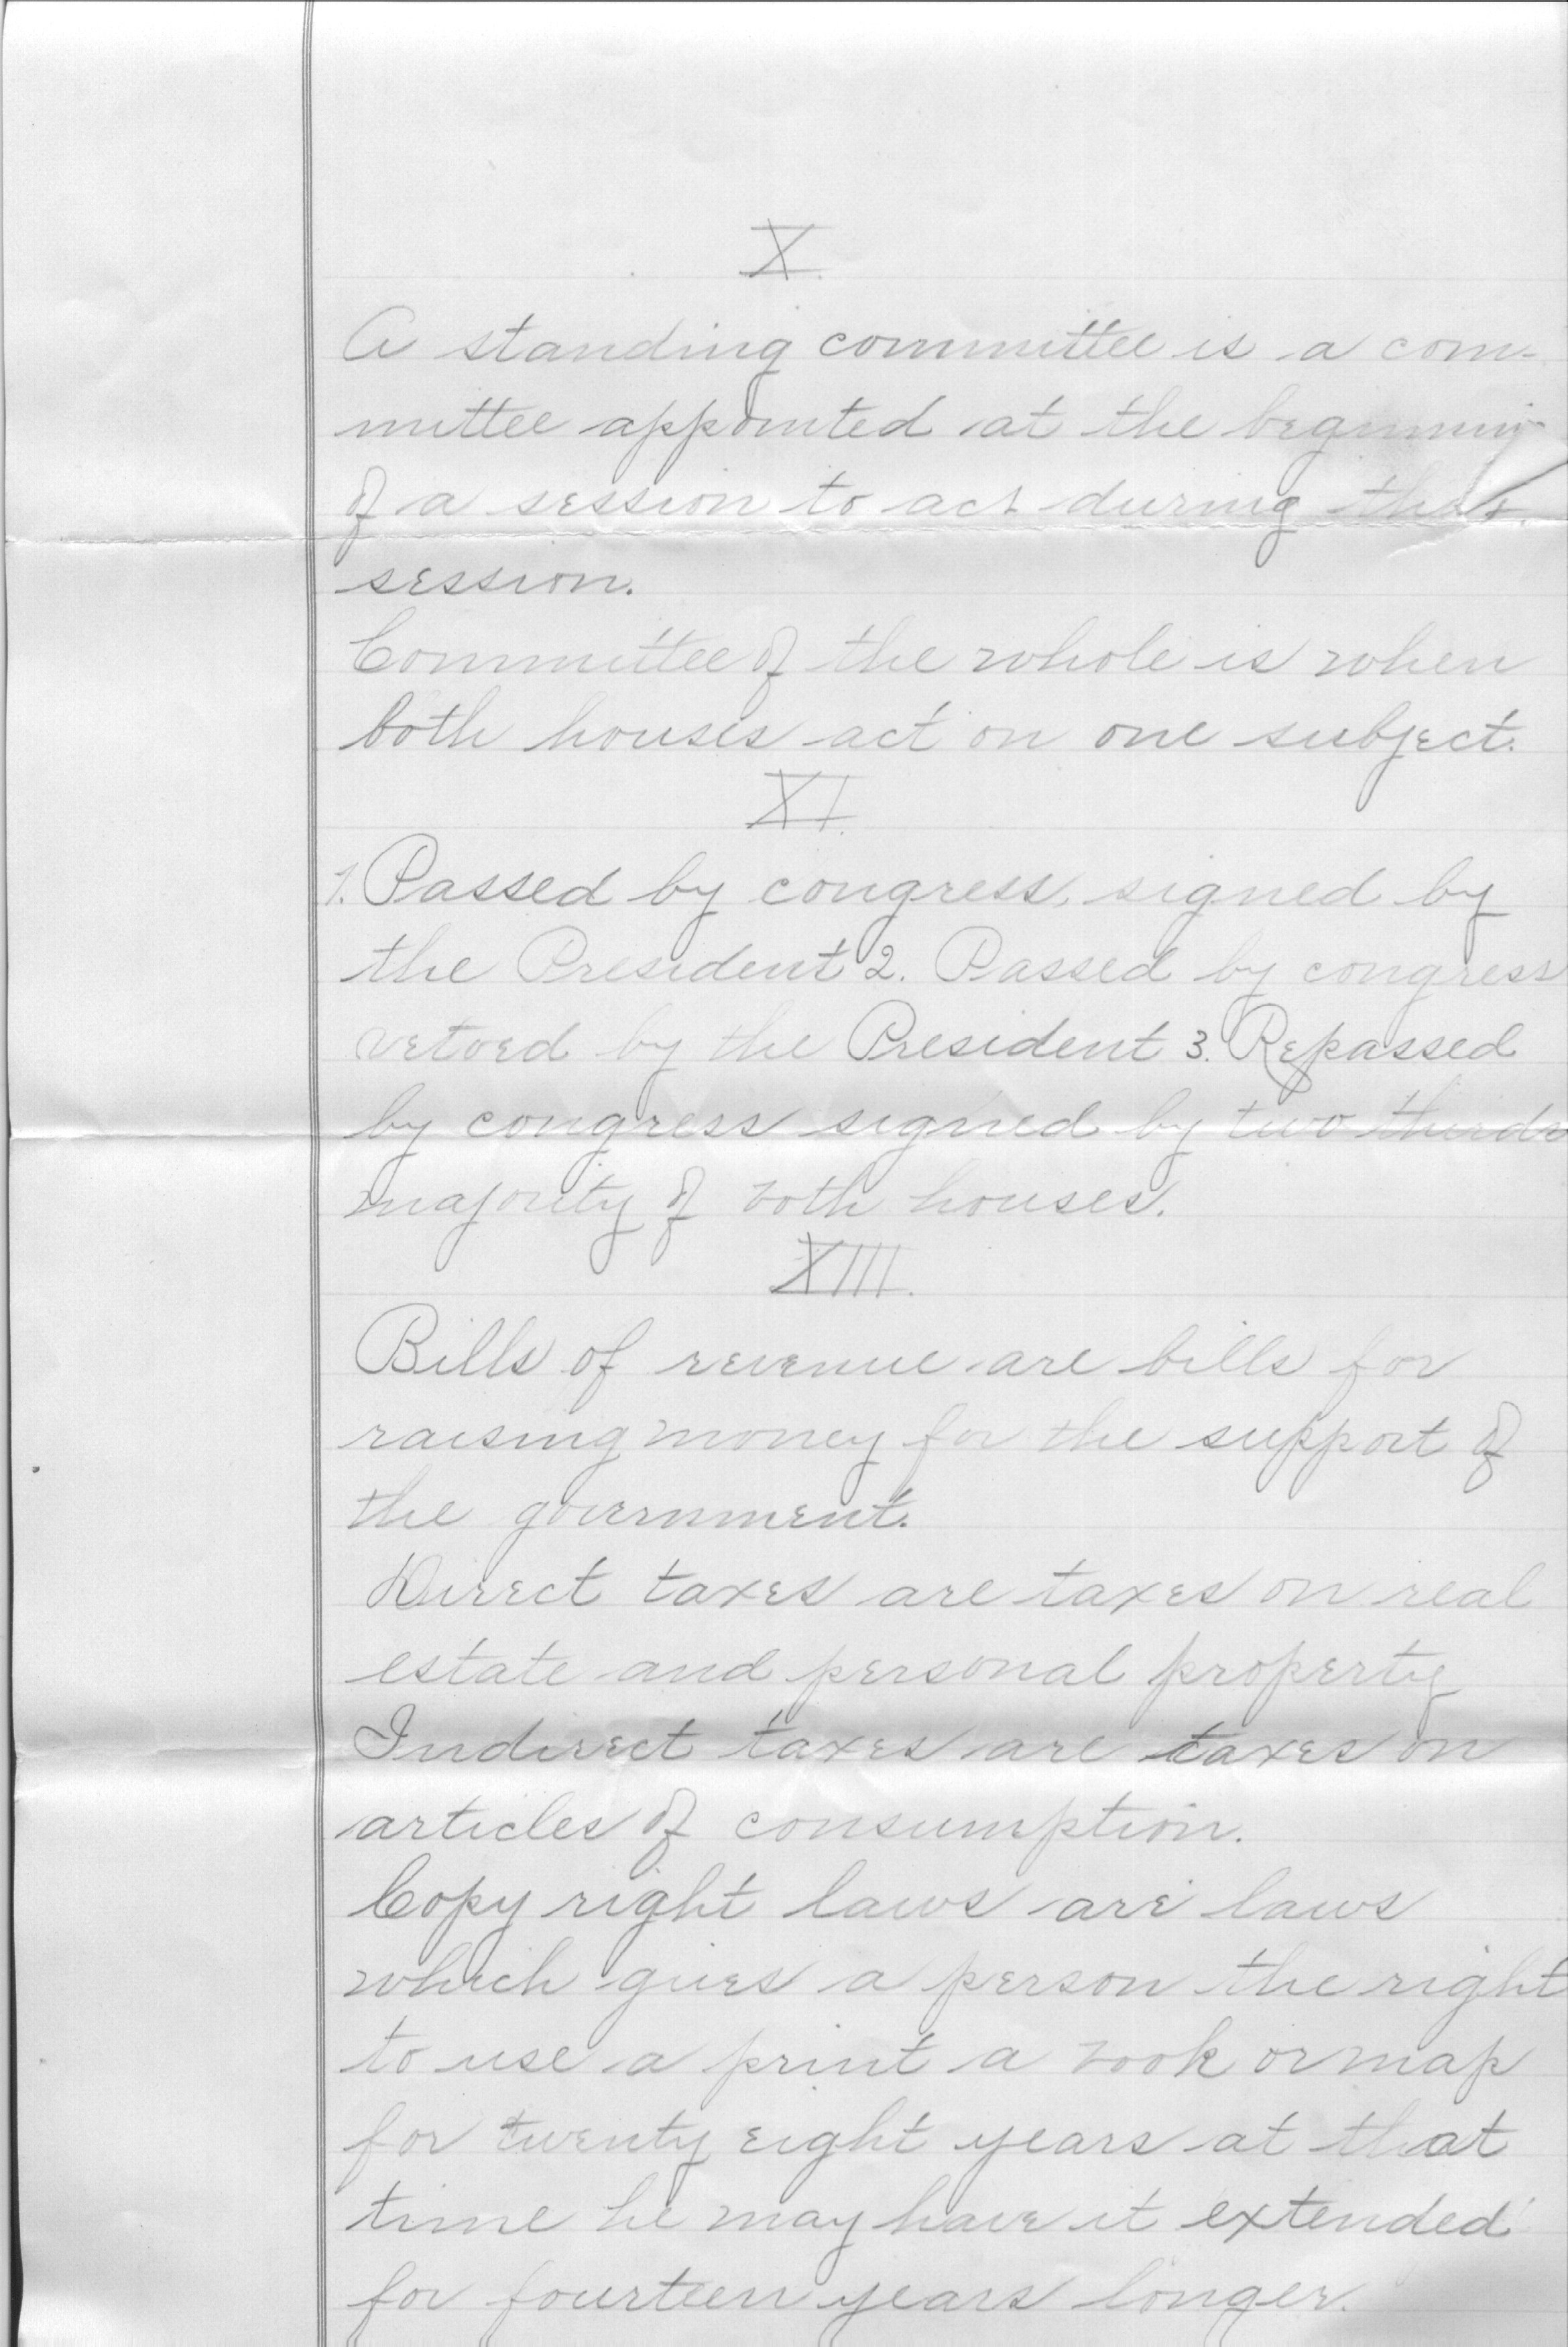 X.
A standing committee is a com-
mittee appointed at the beginning
of a session to act during that
session.
Committee of the whole is when
both houses act on one subject.
XI.
1. Passed by congress, signed by
the President 2. Passed by congress
vetoed by the President 3. Repassed
by congress signed by two thirds
majority of both houses.
XIII.
Bills of revenue are bills for
raising money for the support of
the government.
Direct taxes are taxes on real
estate and personal property
Indirect taxes are taxes on
articles of consumption.
Copy right laws are laws
which gives a person the right
to use a print a book or map
for twenty eight years at that
time he may have it extended
for fourteen years longer.